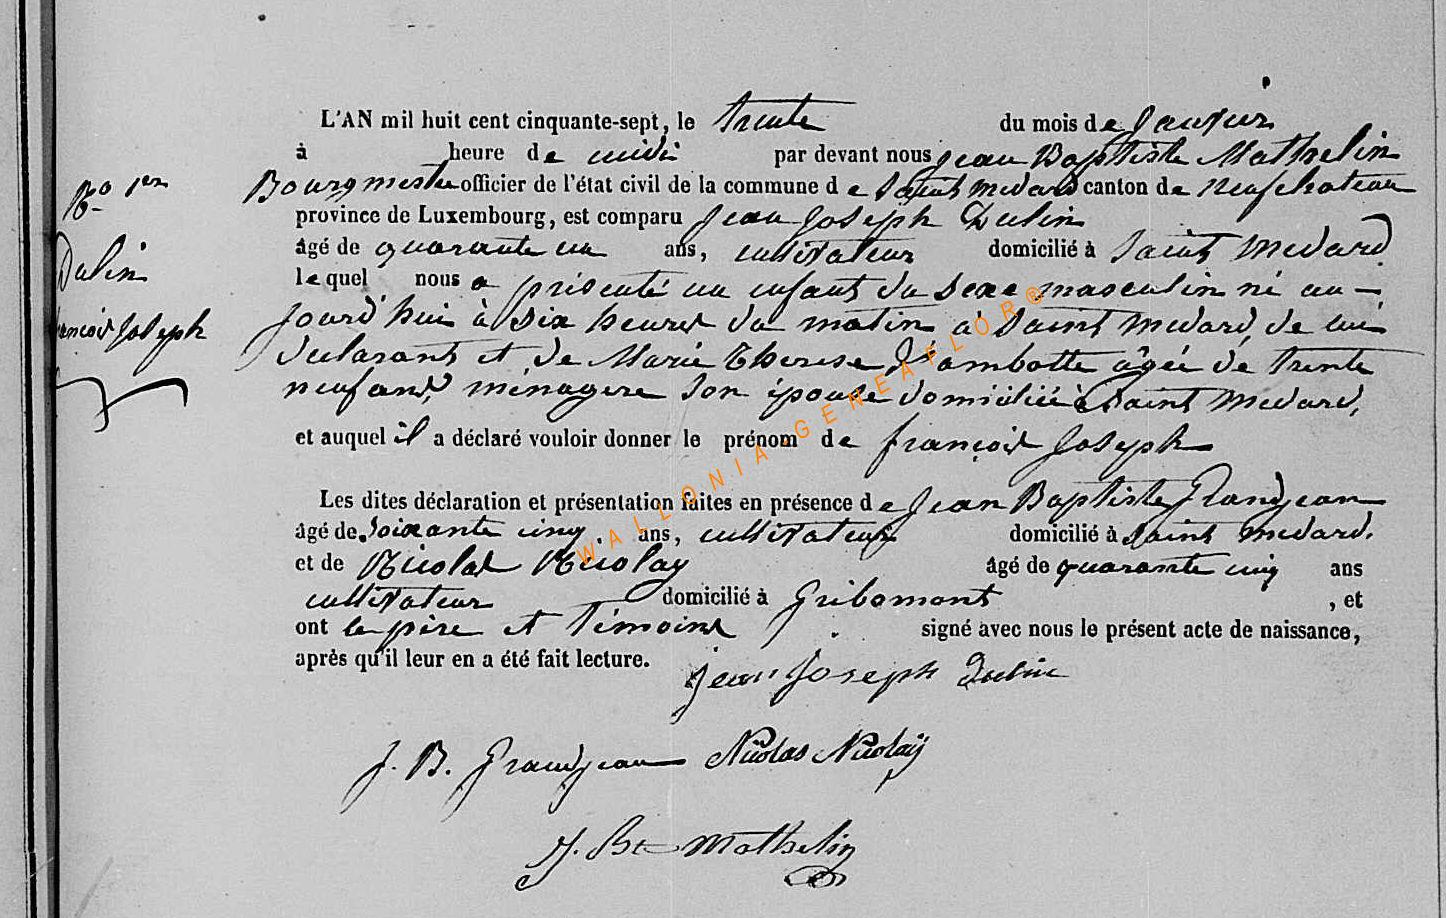 L'AN mil huit cent cinquante-sept, le trente du mois de Janvier
à heure de midi par devant nous Jean Baptiste Mathelin
Bourgmestre officier de l'état civil de la commune de Saint Médard canton de neufchateau
province de Luxembourg, est comparu Jean Joseph Dulin
âgé de quarante un ans, cultivateur domicilié à Saint Médard
lequel nous a présenté un enfant du sexe masculin né au-
jourd'hui à six heures du matin à Saint Médard, de lui
déclarant et de Marie Thérèse Jambotte âgée de trente
neuf ans, ménagère son épouse domiciliée à Saint Médard,
et auquel il a déclaré vouloir donner le prénom de françois Joseph
Les dites déclaration et présentation faites en présence de Jean Baptiste Grandjean
âgé de soixante cinq ans, cultivateur domicilié à Saint Médard.
et de Nicolas Nicolay âgé de quarante cinq ans
cultivateur domicilié à Gribomont , et
ont le père et témoins signé avec nous le présent acte de naissance,
après qu'il leur en a été fait lecture.
Jean Joseph Dulin
J. B. Grandjean Nicolas Nicolaÿ
J. Bte Mathelin
No 1er
Dulin
françois Joseph
WALLONIA-GENEAFLOR®